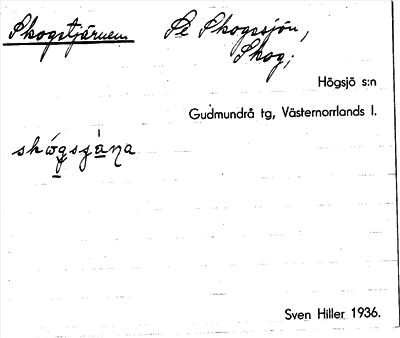 Skogstjärnen Se Skogssjön,
Skog;
Högsjö s:n
Gudmundrå tg, Västernorrlands l.
Sven Hiller 1936.